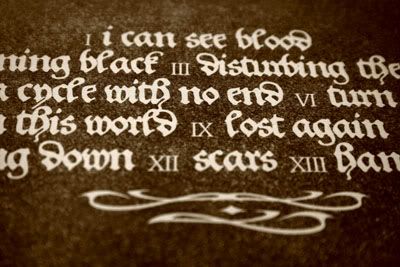 I i can see blood
ning black III disturbing the
a cycle with no end VI turn
n this world IX lost again
ng down XII scars XIII han